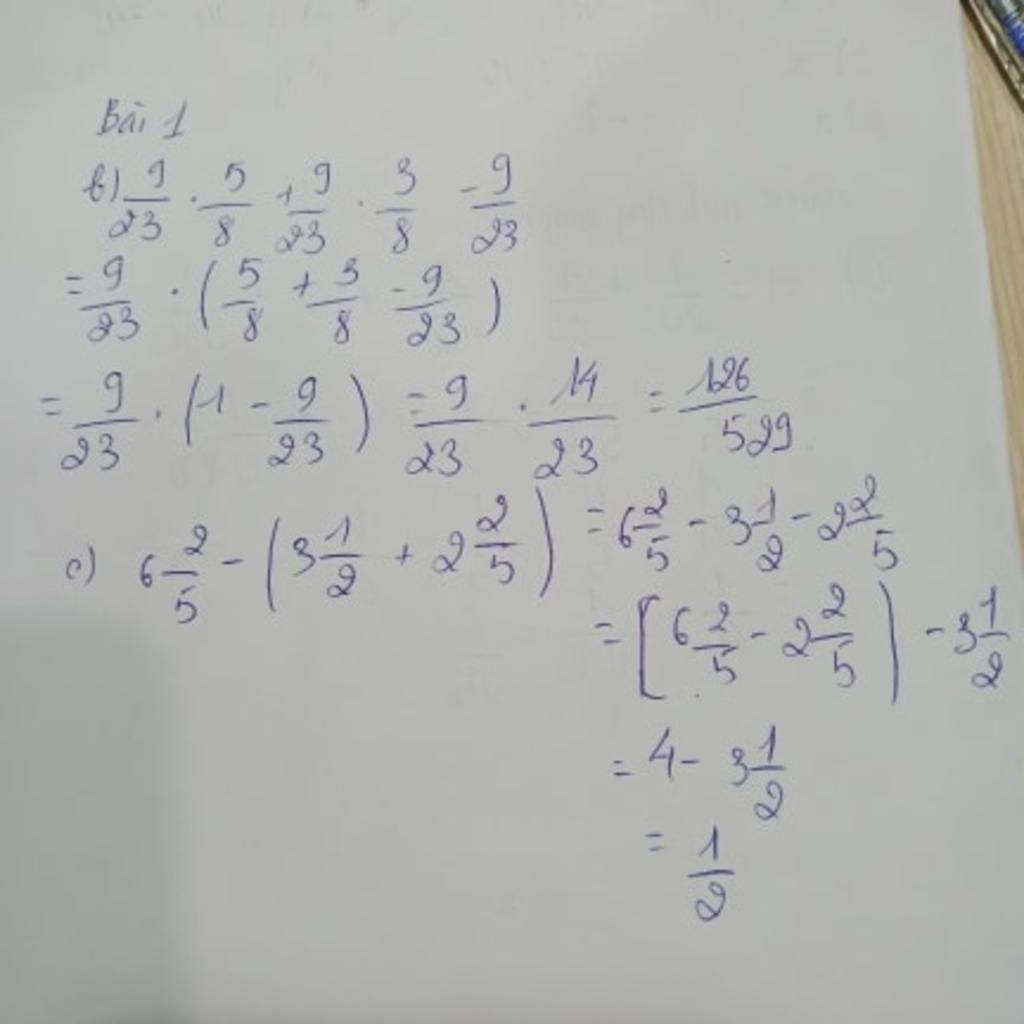 Bài 1
b) 9/23 . 5/8 + 9/23 . 3/8 - 9/23
= 9/23 . (5/8 + 3/8 - 9/23)
= 9/23 . (1 - 9/23) = 9/23 . 14/23 = 126/529
c) 6 2/5 - (3 1/2 + 2 2/5) = 6 2/5 - 3 1/2 - 2 2/5
= [6 2/5 - 2 2/5) - 3 1/2
= 4 - 3 1/2
= 1/2